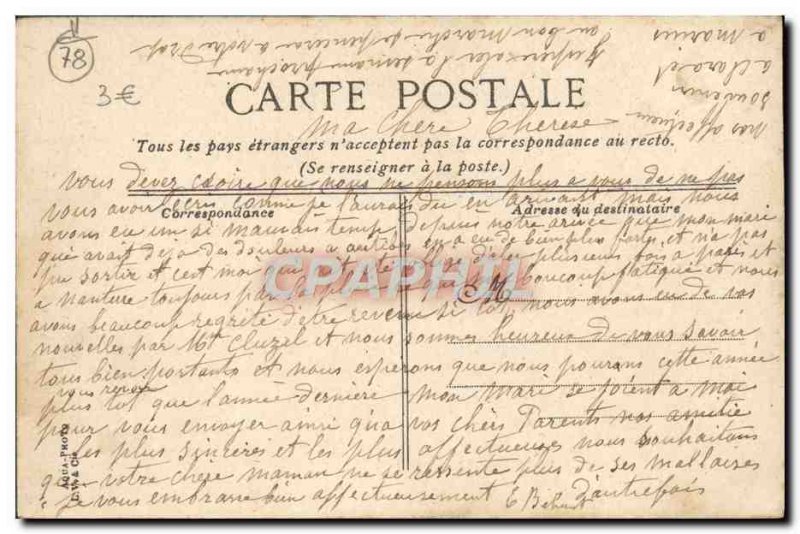 78
3€
au bon marché dépenser a votre
la semaine prochaine
a Marius
a Clara et
souvenirs
affectueux
CARTE POSTALE
Ma Chère Thérèse
Tous les pays étrangers n'acceptent pas la correspondance au recto.
(Se renseigner à la poste.)
vous devez croire que nous ne pensons plus a vous de ne pas
vous avoir écris comme je l'aurais du en arrivant mais nous
Correspondance
Adresse du destinataire
avons eu un si mauvais temps depuis notre arrivé que mon mari
qui avait déja des douleurs a en a eu de bien plus fortes et n'a pas
pu sortir et c'est moi qui plusieurs fois a pagés et
a Nanterre toujours beaucoup fatigué et nous
CPAPHIL
M
avons beaucoup regretté d'etre revenu si tot nous avons eu de vos
nouvelles par Mlle Cluzel et nous sommes heureux de vous savoir
tous bien portants et nous esperons que nous pourons cette année
vous revoir
plus tot que l'année dernière mon mari se joient a moi
pour vous envoyer ainsi qu'a vos chèrs Parents nos amitié
les plus sincères et les plus affectueuses nous souhaitons
que votre chère maman ne se ressente plus de ses mallaises
d'autrefois
je vous embrasse bien affectueusement E
AQUA-PHOTO
L.V. & Cie